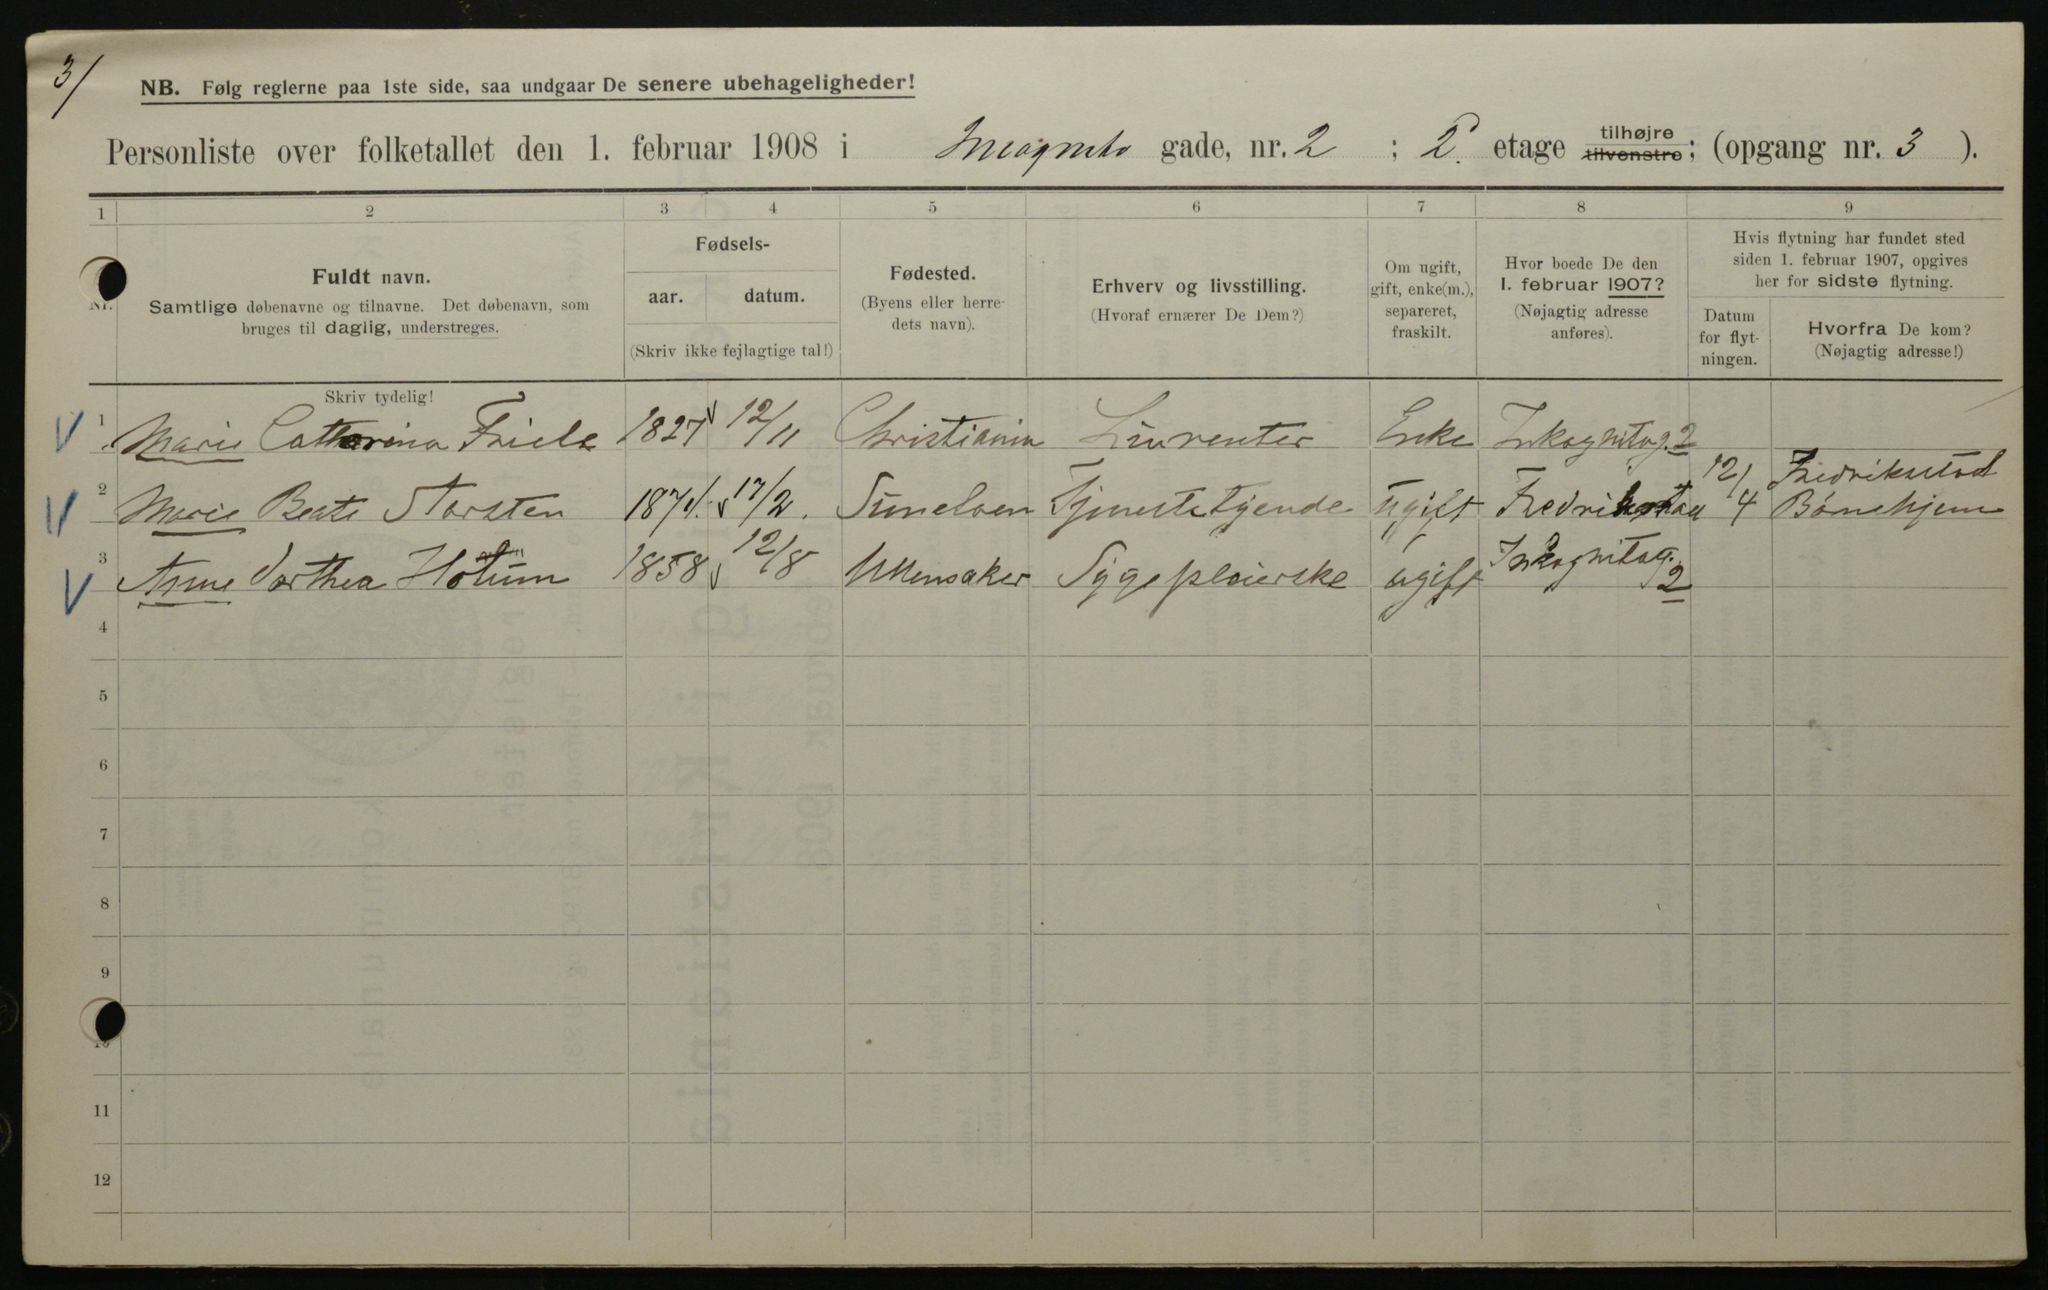 3/
NB. Følg reglerne paa 1ste side, saa undgaar De senere ubehageligheder!
Personliste over folketallet den 1. februar 1908 i Incognito gade, nr. 2 ; 2. etage tilhøjre tilvenstre; (opgang nr. 3 ).
1 2 3 4 5 6 7 8 9
Nr.
Fuldt navn.
Samtlige døbenavne og tilnavne. Det døbenavn, som
bruges til daglig, understreges.
Skriv tydelig!
Fødsels-
aar. datum.
(Skriv ikke fejlagtige tal!)
Fødested.
(Byens eller herre-
dets navn).
Erhverv og livsstilling.
(Hvoraf ernærer De Dem?)
Om ugift,
gift, enke(m.),
separeret,
fraskilt.
Hvor boede De den
1. februar 1907?
(Nøjagtig adresse
anføres).
Hvis flytning har fundet sted
siden 1. februar 1907, opgives
her for sidste flytning.
Datum
for flyt-
ningen.
Hvorfra De kom?
(Nøjagtig adresse!)
1 Marie Catherina Friele 1827 12/11 Christiania Livrenter Enke Inkognitog. 2
2 Marie Beate Storsten 187 17/2. Tjenestetyende ugift Fredrikstad 12/4 Fredrikstad
Børnehjem
3 Anne Dorthea Holum 1858 12/8 Ullensaker Sygepleierske ugift Inkognitog.
2
4
5
6
7
8
9
10
11
12